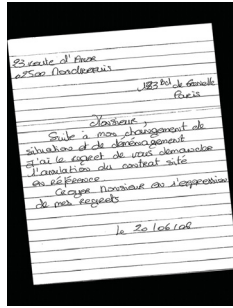 23 route d'
02500 Mondrepuis
183 Bd de Grenelle
Paris
Monsieur,
Suite à mon changement de
situation et de déménagement
J'ai le regret de vous demander
l'annulation du contrat sité
en référence
Croyer Monsieur en l'expression
de mes regrets
Le 20/06/08